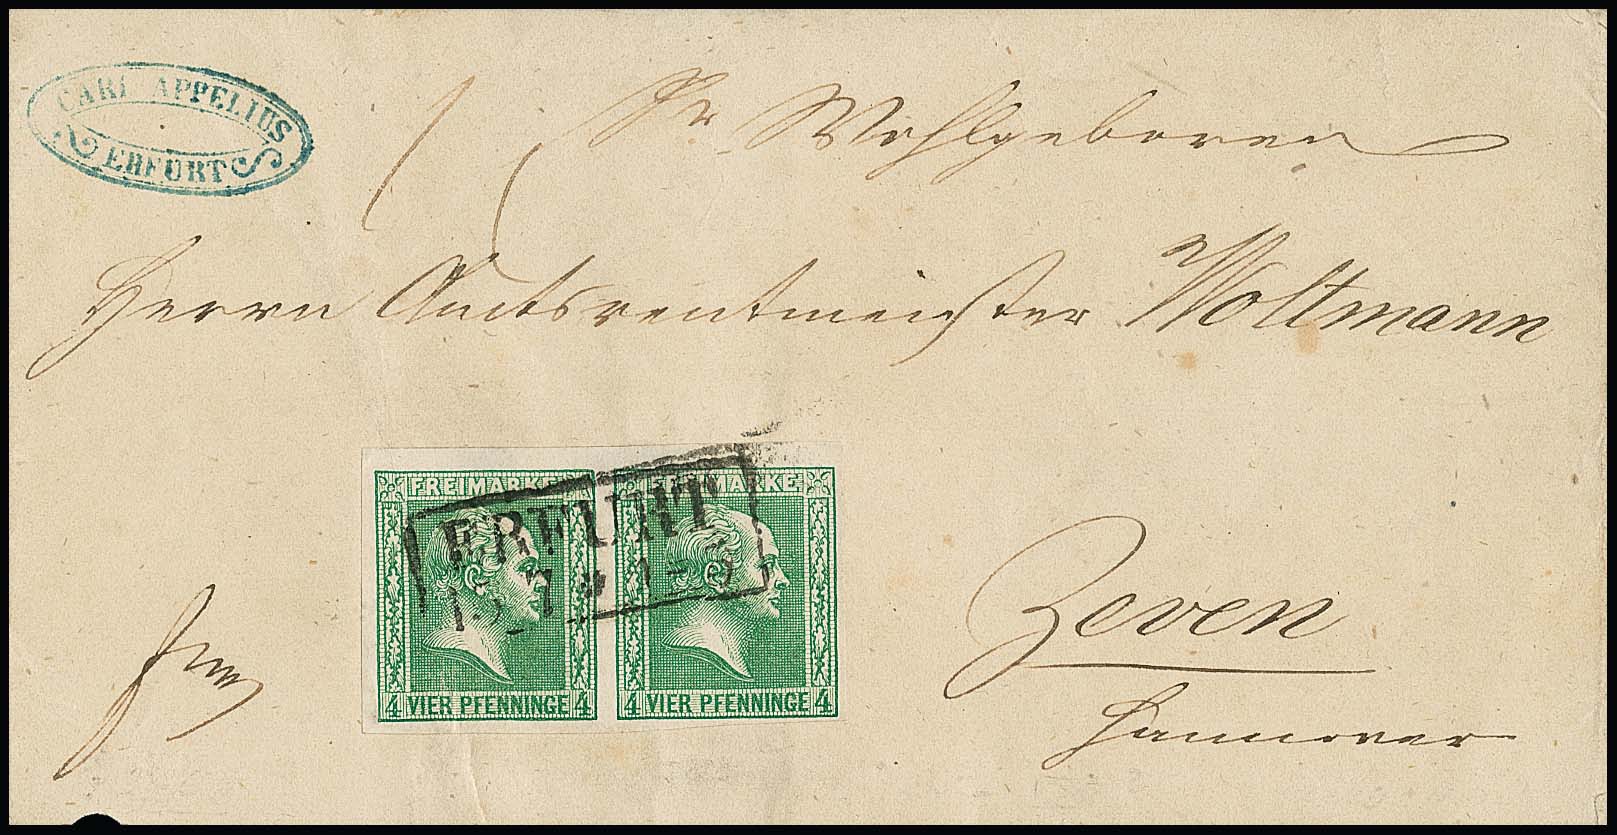 CARL APPELIUS
ERFURT
Sr. Wohlgeboren
Herrn Amtsrentmeister Woltmann
FREIMARKE FREIMARKE
ERFURT
15 7 * 1-5
4 VIER PFENNINGE 4 4 VIER PFENNINGE 4
Zeven
Hannover